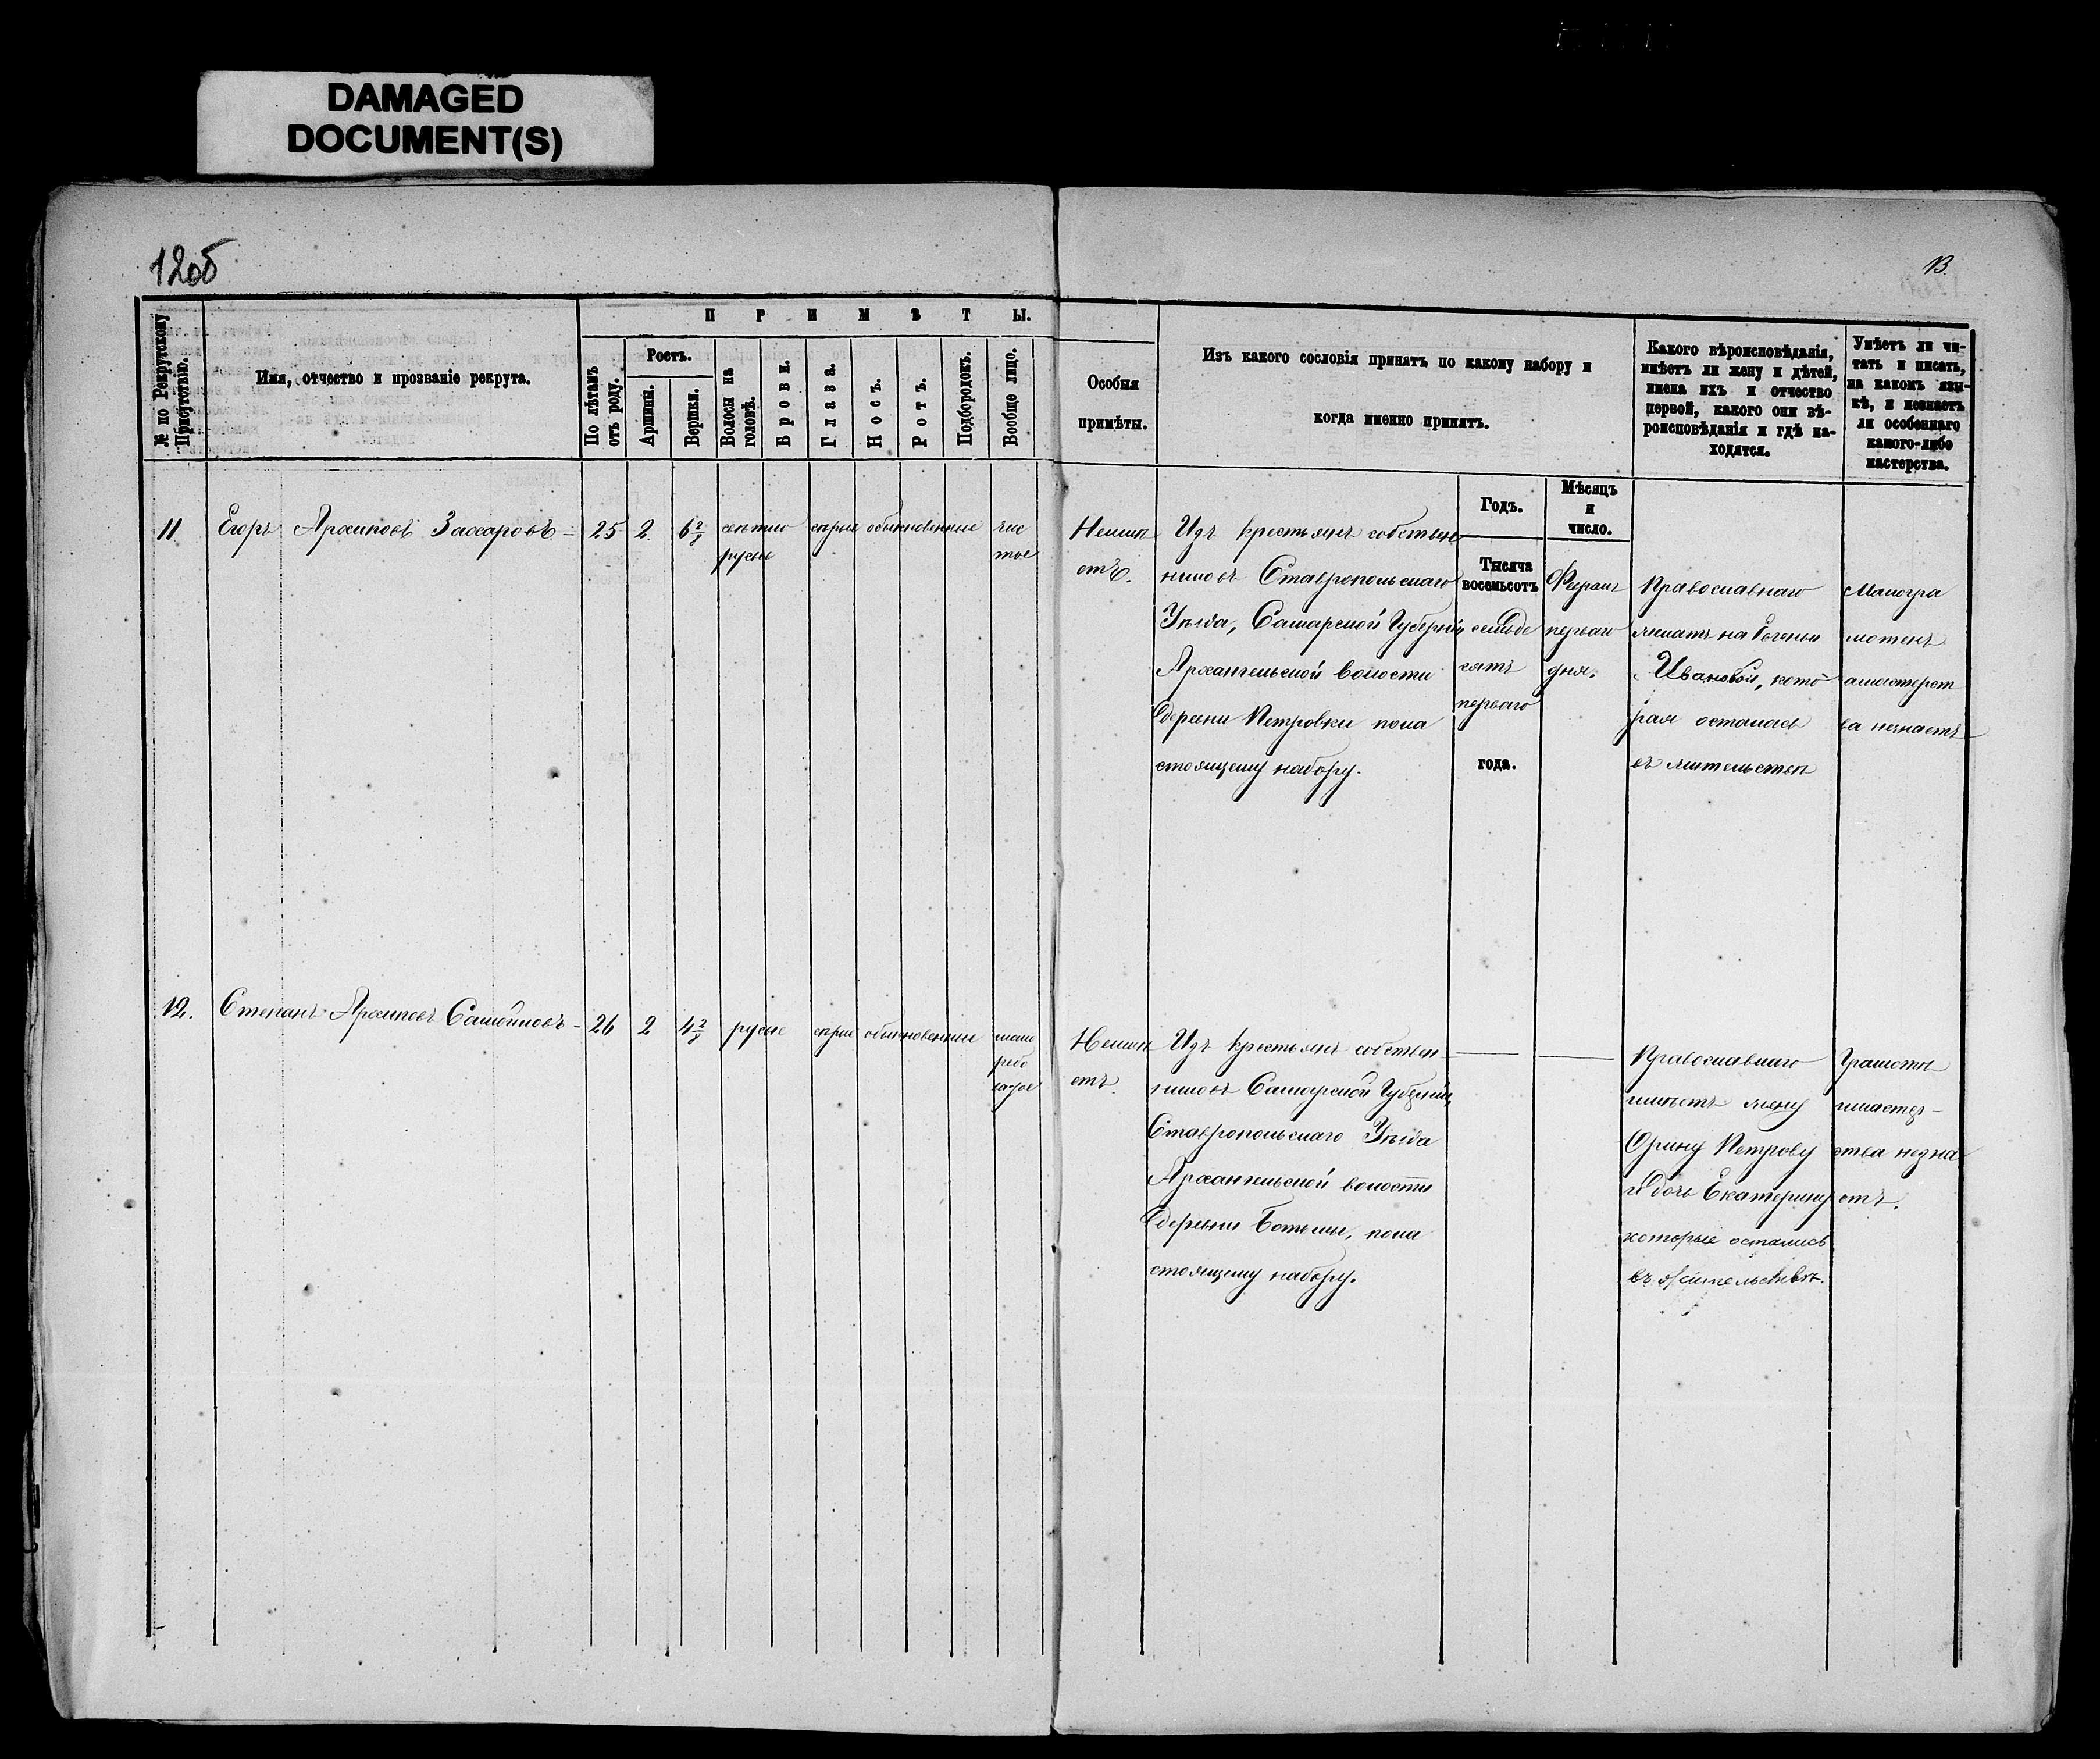 DAMAGED
DOCUMENT(S)
12об
13.
№ по Рекрутскому Присутствію.
Имя, отчество и прозваніе рекрута.
ПРИМѢТЫ.
По лѣтамъ отъ роду.
Ростъ.
Аршины.
Вершки.
Волосы на головѣ.
Брови.
Глаза.
Носъ.
Ротъ.
Подбородокъ.
Вообще лицо.
Особыя
примѣты.
Изъ какого сословія принятъ по какому набору и
когда именно принятъ.
Какого вѣроисповѣданія,
имѣетъ ли жену и дѣтей,
имена ихъ и отчество
первой, какого они вѣ-
роисповѣданія и гдѣ на-
ходятся.
Умѣетъ ли чи-
тать и писать,
на какомъ язы-
кѣ, и незнаетъ
ли особеннаго
какого-либо
мастерства.
Годъ.
Мѣсяцъ
и
число.
11 Егоръ Архиповъ Захаровъ - 25 2 6 2/8 свѣтло
русые
сѣрые обыкновенные
чис
тое
Неимѣ
етъ.
Изъ крестьянъ собствен
никовъ Ставропольскаго
Уѣзда, Самарской Губерніи
Архангельской волости
деревни Петровки пона
стоящему набору.
Тысяча
восемьсотъ
семьде
сятъ
перваго
года.
перваго
дня.
Православнаго
женатъ на Евгеньи
Ивановой, кото
рая осталась
въ жительствѣ
Малогра
мотенъ
амастерст
ва незнаетъ
12. Степанъ Архиповъ Самойловъ - 26 2 4 2/8 русые сѣрые обыкновенные
мало
рябо
ватое
Неимѣ
етъ.
Изъ крестьянъ собствен
никовъ Самарской Губерніи,
Ставропольскаго Уѣзда
Архангельской волости
деревни Ботьмы, пона
стоящему набору.
Православнаго
имѣетъ жену
Орину Петрову
и дочь Екатерину
которые остались
въ жительствѣ.
Грамотѣ
имастер-
ства незна
етъ.